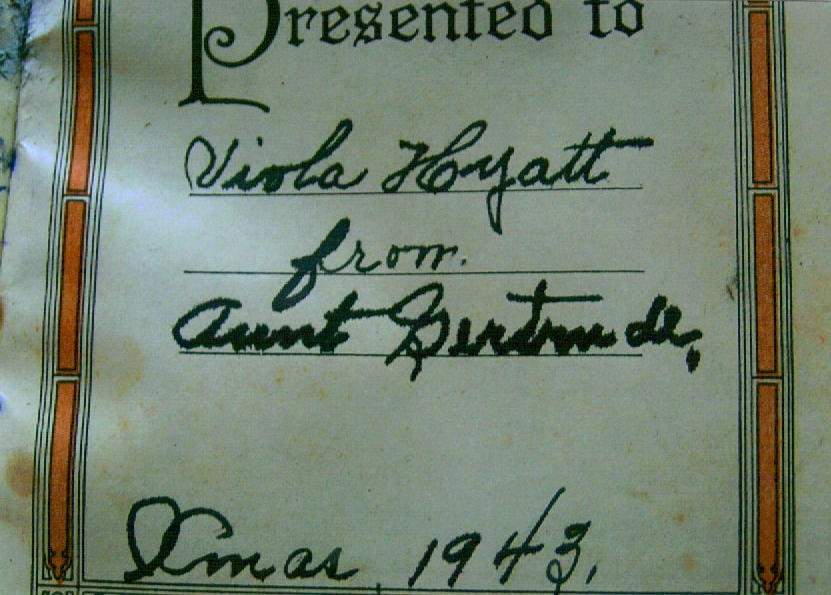 Presented to
Viola Hyatt
from.
Aunt Gertrude,
Xmas 1943.